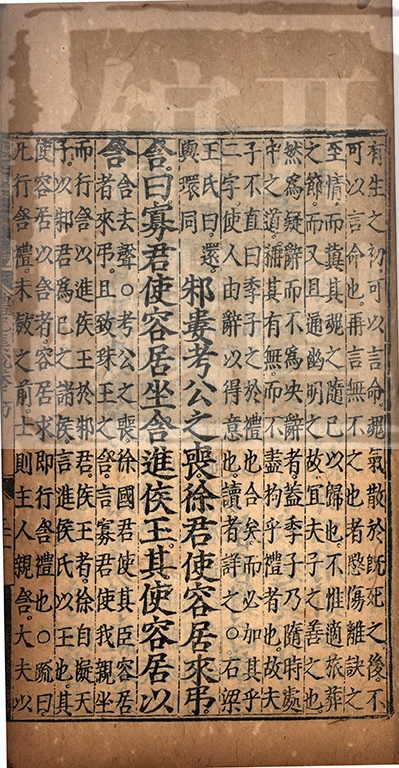 有生之初可以言命魂氣散於既死之後不
可以言命也再言無不之也者愍傷離訣之
至情而冀其魂之隨己以歸也不惟適旅葬
之節而又且通幽明之故宜夫子之善之也
然為疑辭而不為決辭者蓋季子乃隨時處
中之道稱其有無而不盡拘乎禮者也故夫
子不直曰季子之於禮也合矣而必加其乎
二字使人由辭以得意也讀者詳之○石梁
王氏曰還
與環同
邾婁考公之喪徐君使容居來弔
含曰寡君使容居坐含進侯玉其使容居以
含
含去聲○考公之喪徐國君使其臣容居
者來弔且致珠玉之含言寡君使我親坐
而行含以進侯玉於邾君侯玉者徐自擬天
子以邾君為己之諸侯言進侯氏以玉也其
使容居以含者容居求即行含禮也○疏曰
凡行含禮未斂之前士則主人親含大夫以